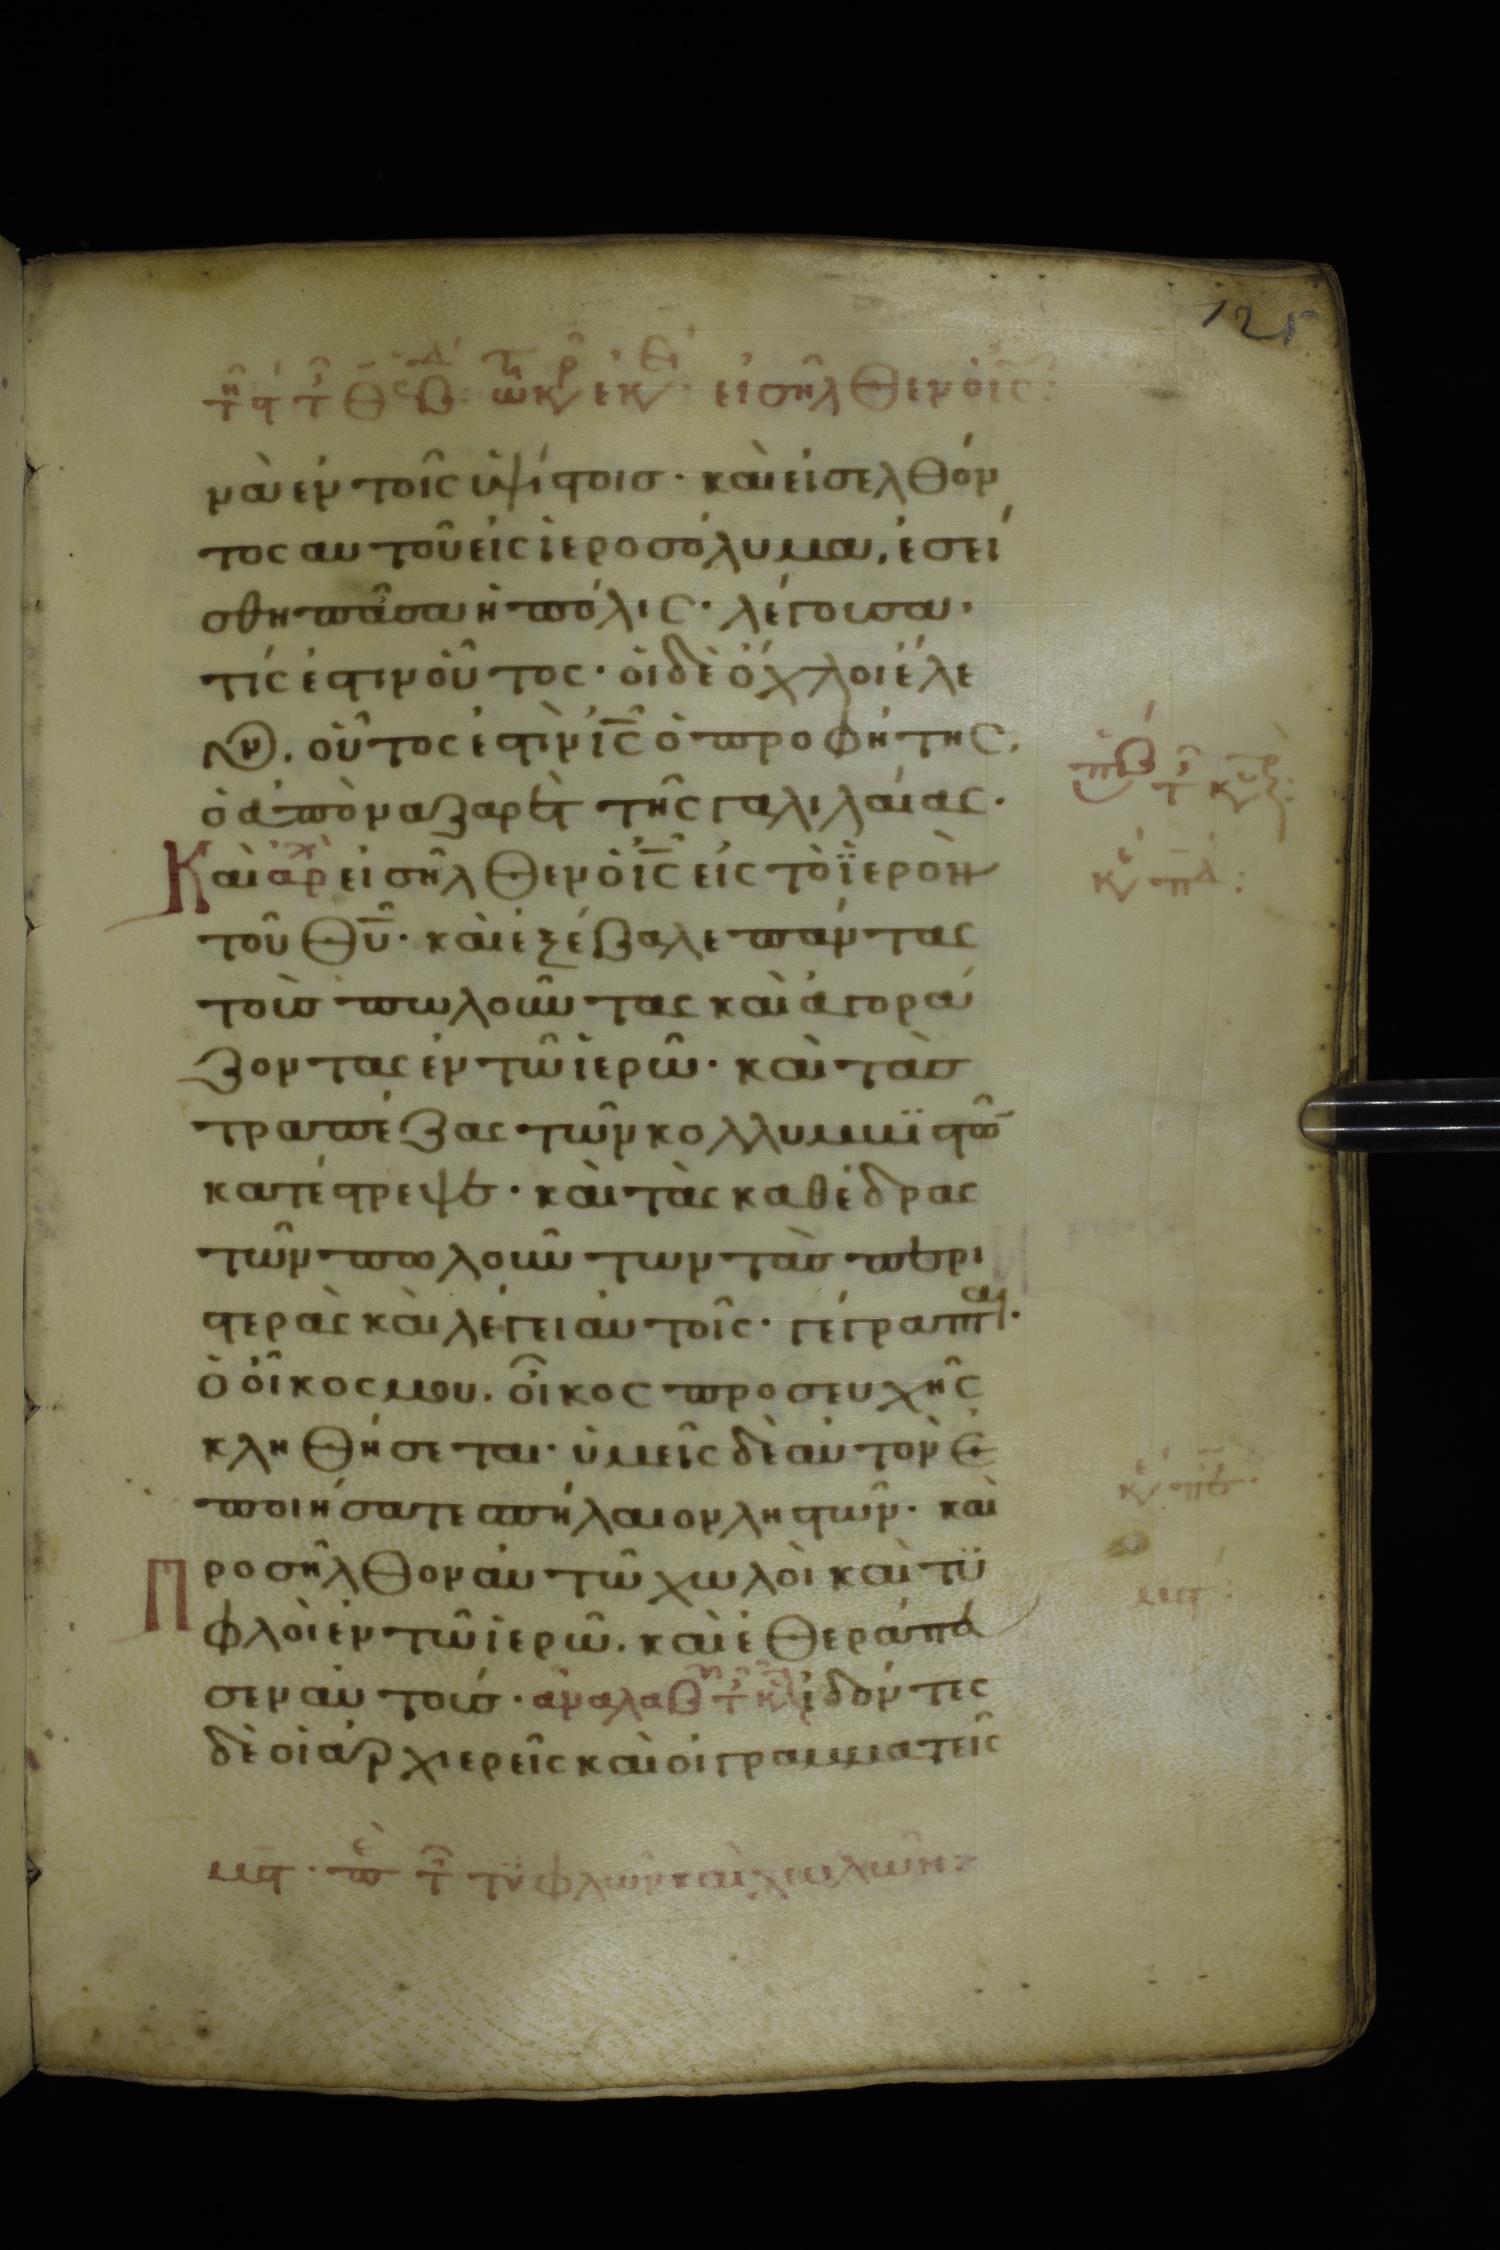 125
εἰσῆλθεν ὁ ἰς:
νὰ ἐν τοῖς ὑψίστοις· καὶ εἰσελθόν
τος αυτοῦ εἰς ἱεροσόλυμα, ἐσεί
σθη πᾶσα ἡ πόλις· λέγουσα,
τίς ἐστιν οὗτος· ὁι δὲ ὄχλοι ἔλε
γον, οὗτος ἐστὶν ἰς ὁ προφήτης,
ὁ ἀπὸ ναζαρὲτ τῆς γαλιλαίας·
Καὶ αρχ εἰσῆλθεν ὁ ἰς εἰς τὸ ἱερὸν
τοῦ θυ· καὶ ἐξέβαλε πάντας
τοὺς πωλοῦντας καὶ ἀγορά
ζοντας ἐν τῶ ἱερῶ· καὶ τὰς
τραπέζας τῶν κολλυμιϊστῶ
κατέστρεψε· καὶ τὰς καθέδρας
τῶν πωλούντων τὰς περι
στερὰς καὶ λέγει αὐτοῖς· γέγραπται·
ὁ οἶκος μου, οἶκος προσευχῆς
κληθήσεται· ὑμεῖς δὲ αὐτὸν ἐ
ποιήσατε σπήλαιον ληστῶν· καὶ
Προσῆλθον αὐτῶ χωλοὶ καὶ τυ
φλοὶ ἐν τῶ ἱερῶ, καὶ ἐθεράπευ
σεν αὐτούς· ἀναλαβ ἰδόντες
δὲ οἱ ἀρχιερεῖς καὶ οἱ γραμματεῖς
τυφλῶν καὶ χωλῶν